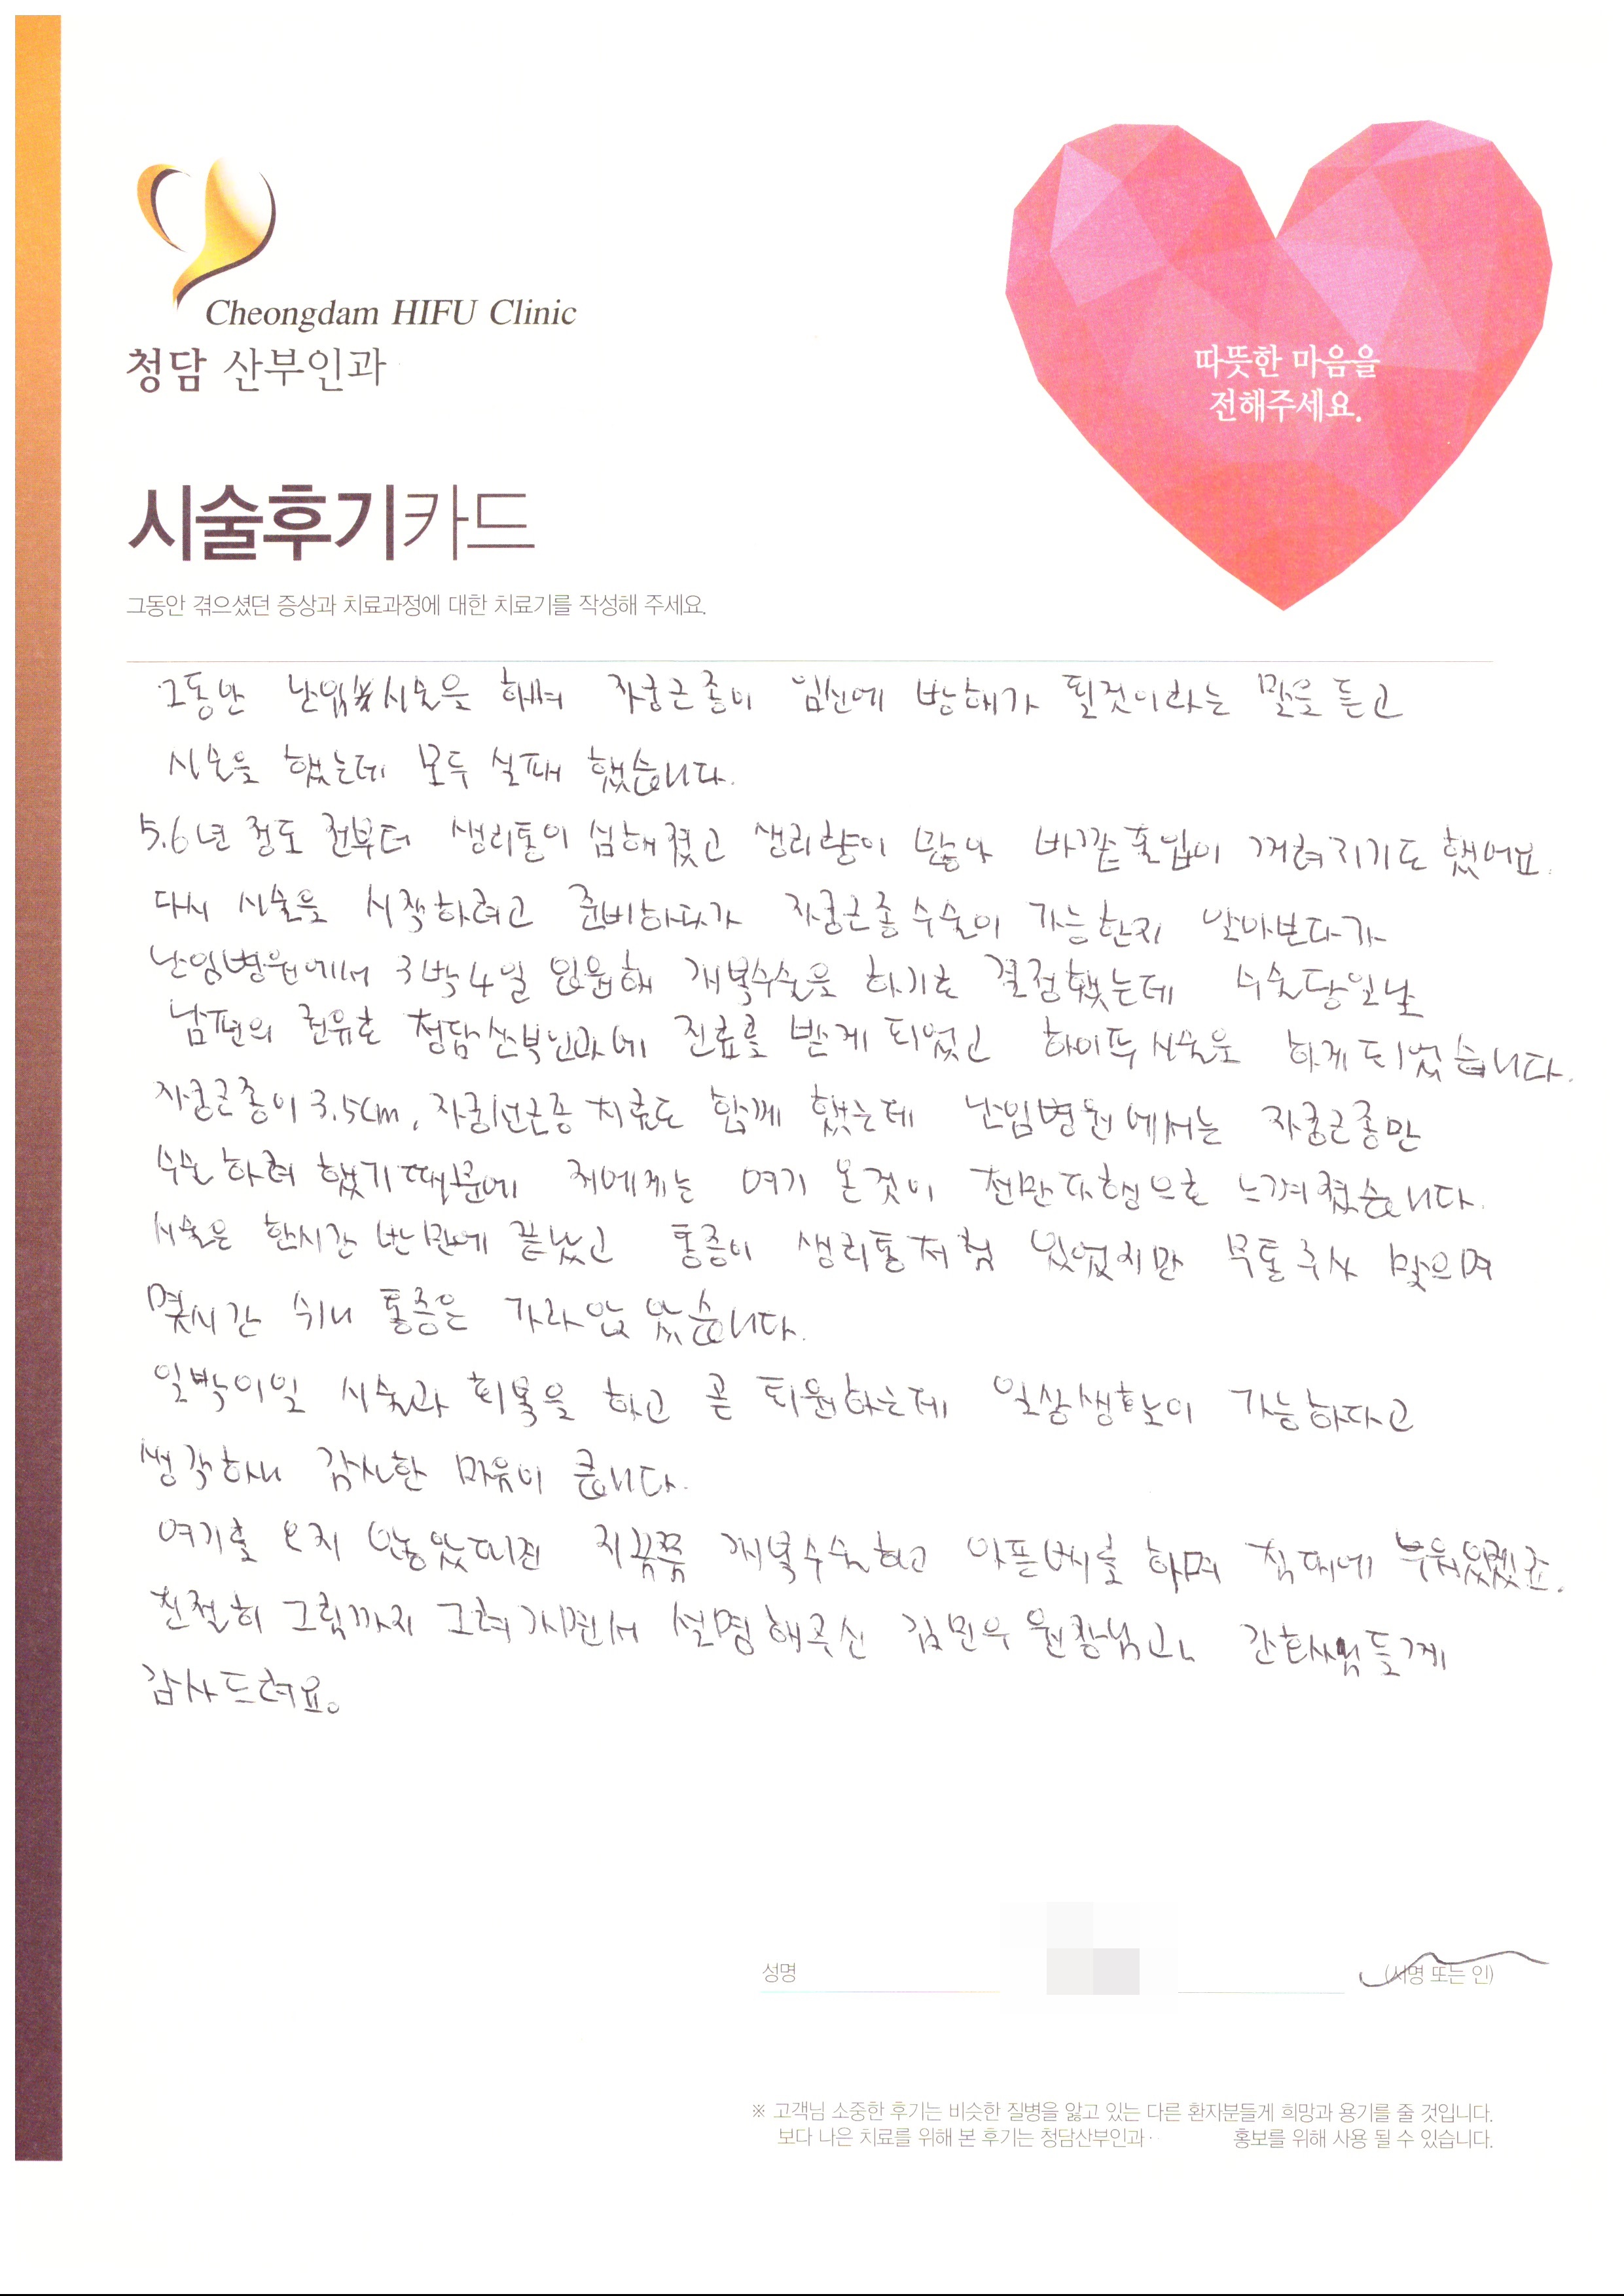 Cheongdam HIFU Clinic
청담 산부인과
따뜻한 마음을
전해주세요.
시술후기카드
그동안 겪으셨던 증상과 치료과정에 대한 치료기를 작성해 주세요.
그동안 난임 시술을 하며 자궁근종이 임신에 방해가 될것이라는 말을 듣고
시술을 했는데 모두 실패 했습니다.
5.6년 정도 전부터 생리통이 심해졌고 생리량이 많아 바깥출입이 꺼려지기도 했어요.
다시 시술을 시작하려고 준비하다가 자궁근종수술이 가능한지 알아보다가
난임병원에서 3박4일 입원해 개복수술을 하기로 결정했는데 수술당일날
남편의 권유로 청담산부인과에 진료를 받게 되었고 하이푸시술을 하게되었습니다.
자궁근종이 3.5cm, 자궁선근증 치료도 함께 했는데 난임병원에서는 자궁근종만
수술하려 했기때문에 저에게는 여기 온것이 천만다행으로 느껴졌습니다.
시술은 한시간 반만에 끝났고 통증이 생리통처럼 있었지만 무통주사 맞으며
몇시간 쉬니 통증은 가라앉았습니다.
일박이일 시술과 회복을 하고 곧 퇴원하는데 일상생활이 가능하다고
생각하니 감사한 마음이 큽니다.
여기를 오지 않았더라면 지금쯤 개복수술하고 아픈배를 하며 침대에 누워있겠죠.
친절히 그림까지 그려가시면서 설명해주신 김민우 원장님고, 간호사님들게
감사드려요.
성명
(서명 또는 인)
※ 고객님 소중한 후기는 비슷한 질병을 앓고 있는 다른 환자분들게 희망과 용기를 줄 것입니다.
보다 나은 치료를 위해 본 후기는 청담산부인과 홍보를 위해 사용 될 수 있습니다.